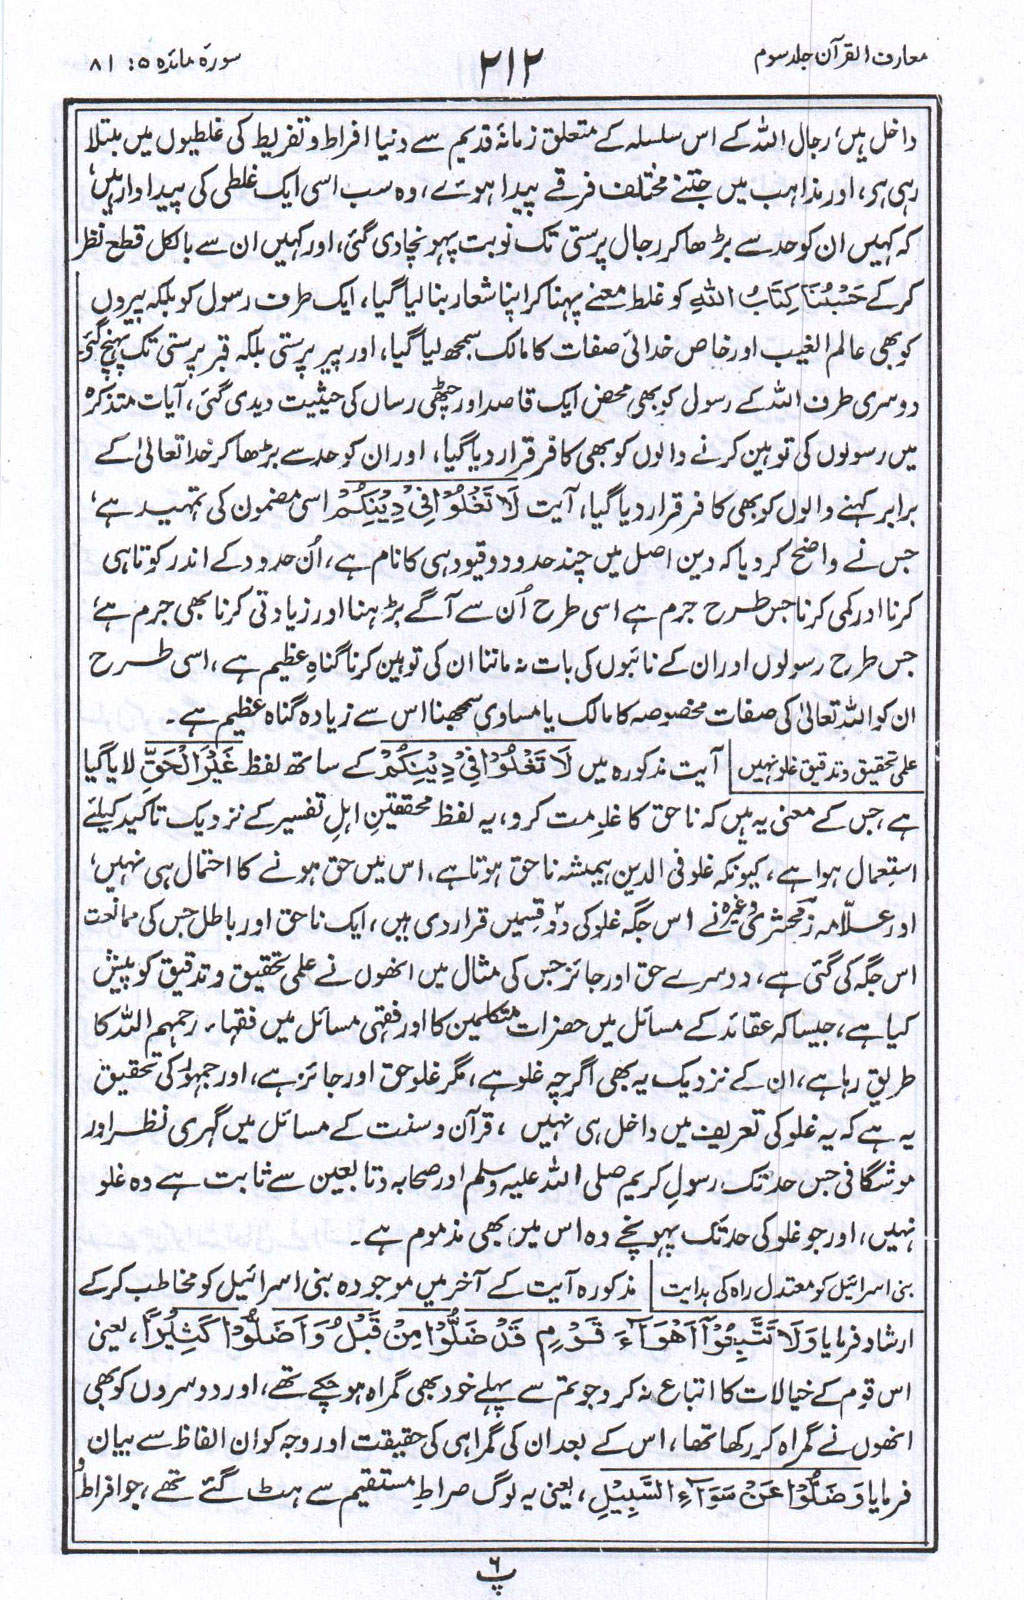 معارف القرآن جلد سوم
۲۱۲
سورۃ مائدہ ۵: ۸۱
داخل ہیں، رجال اللہ کے اس سلسلہ کے متعلق زمانۂ قدیم سے دنیا افراط و تفریط کی غلطیوں میں مبتلا
رہی ہو، اور مذاہب میں جتنے مختلف فرقے پیدا ہوئے، وہ سب اسی ایک غلطی کی پیداوار ہیں،
کہ کہیں ان کو حد سے بڑھا کر رجال پرستی تک نوبت پہونچا دی گئی، اور کہیں ان سے بالکل قطع نظر
کرکے حَسْبُنَا کِتَابُ اللّٰہِ کو غلط معنے پہنا کر اپنا شعار بنا لیا گیا، ایک طرف رسول کو بلکہ پیروں
کو بھی عالم الغیب اور خاص خدائی صفات کا مالک سمجھ لیا گیا، اور پیر پرستی بلکہ قبر پرستی تک پہنچ گئے،
دوسری طرف اللہ کے رسول کو بھی محض ایک قاصد اور چٹھی رساں کی حیثیت دیدی گئی، آیات متذکرہ
میں رسولوں کی توہین کرنے والوں کو بھی کافر قرار دیا گیا، اور ان کو حد سے بڑھا کر خدا تعالیٰ کے
برابر کہنے والوں کو بھی کافر قرار دیا گیا، آیت لَا تَغْلُوْا فِیْ دِیْنِکُمْ اسی مضمون کی تمہید ہے،
جس نے واضح کر دیا کہ دین اصل میں چند حدود و قیود ہی کا نام ہے، اُن حدود کے اندر کوتاہی
کرنا اور کمی کرنا جس طرح جرم ہے اسی طرح اُن سے آگے بڑہنا اور زیادتی کرنا بھی جرم ہے،
جس طرح رسولوں اور ان کے نائبوں کی بات نہ ماننا ان کی توہین کرنا گناہِ عظیم ہے، اسی طرح
ان کو اللہ تعالیٰ کی صفات مخصوصہ کا مالک یا مساوی سمجھنا اس سے زیادہ گناہ عظیم ہے۔
علمی تحقیق و تدقیق غلو نہیں آیت مذکورہ میں لَا تَغْلُوْا فِیْ دِیْنِکُمْ کے ساتھ لفظ غَیْرَ الْحَقِّ لایا گیا
ہے، جس کے معنی یہ ہیں کہ ناحق کا غلو مت کرو، یہ لفظ محققینِ اہلِ تفسیر کے نزدیک تاکید کیلئے
استعمال ہوا ہے، کیونکہ غلو فی الدین ہمیشہ ناحق ہوتا ہے، اس میں حق ہونے کا احتمال ہی نہیں،
اور علّامہ زمخشریؒ وغیرہ نے اس جگہ غلو کی دو ۲ قسمیں قرار دی ہیں، ایک ناحق اور باطل جس کی ممانعت
اس جگہ کی گئی ہے، دوسرے حق اور جائز جس کی مثال میں انھوں نے علمی تحقیق و تدقیق کو پیش
کیا ہے، جیسا کہ عقائد کے مسائل میں حضرات متکلمین کا اور فقہی مسائل میں فقہاء رحمہم اللہ کا
طریق رہا ہے، ان کے نزدیک یہ بھی اگرچہ غلو ہے، مگر غلو حق اور جائز ہے، اور جمہور کی تحقیق
یہ ہے کہ یہ غلو کی تعریف میں داخل ہی نہیں، قرآن و سنت کے مسائل میں گہری نظر اور
موشگافی جس حد تک رسولِ کریم صلی اللہ علیہ وسلم اور صحابہ و تابعین سے ثابت ہے وہ غلو
نہیں، اور جو غلو کی حد تک پہونچے وہ اس میں بھی مذموم ہے۔
بنی اسرائیل کو معتدل راہ کی ہدایت مذکورہ آیت کے آخر میں موجودہ بنی اسرائیل کو مخاطب کرکے
ارشاد فرمایا وَلَا تَتَّبِعُوْٓا اَهْوَآءَ قَوْمٍ قَدْ ضَلُّوْا مِنْ قَبْلُ وَاَضَلُّوْا کَثِیْرًا، یعنی
اس قوم کے خیالات کا اتباع نہ کرو جو تم سے پہلے خود بھی گمراہ ہو چکے تھے، اور دوسروں کو بھی
انھوں نے گمراہ کر رکھا تھا، اس کے بعد ان کی گمراہی کی حقیقت اور وجہ کو ان الفاظ سے بیان
فرمایا وَضَلُّوْا عَنْ سَوَآءِ السَّبِیْلِ، یعنی یہ لوگ صراطِ مستقیم سے ہٹ گئے تھے، جو افراط و
پ ۶